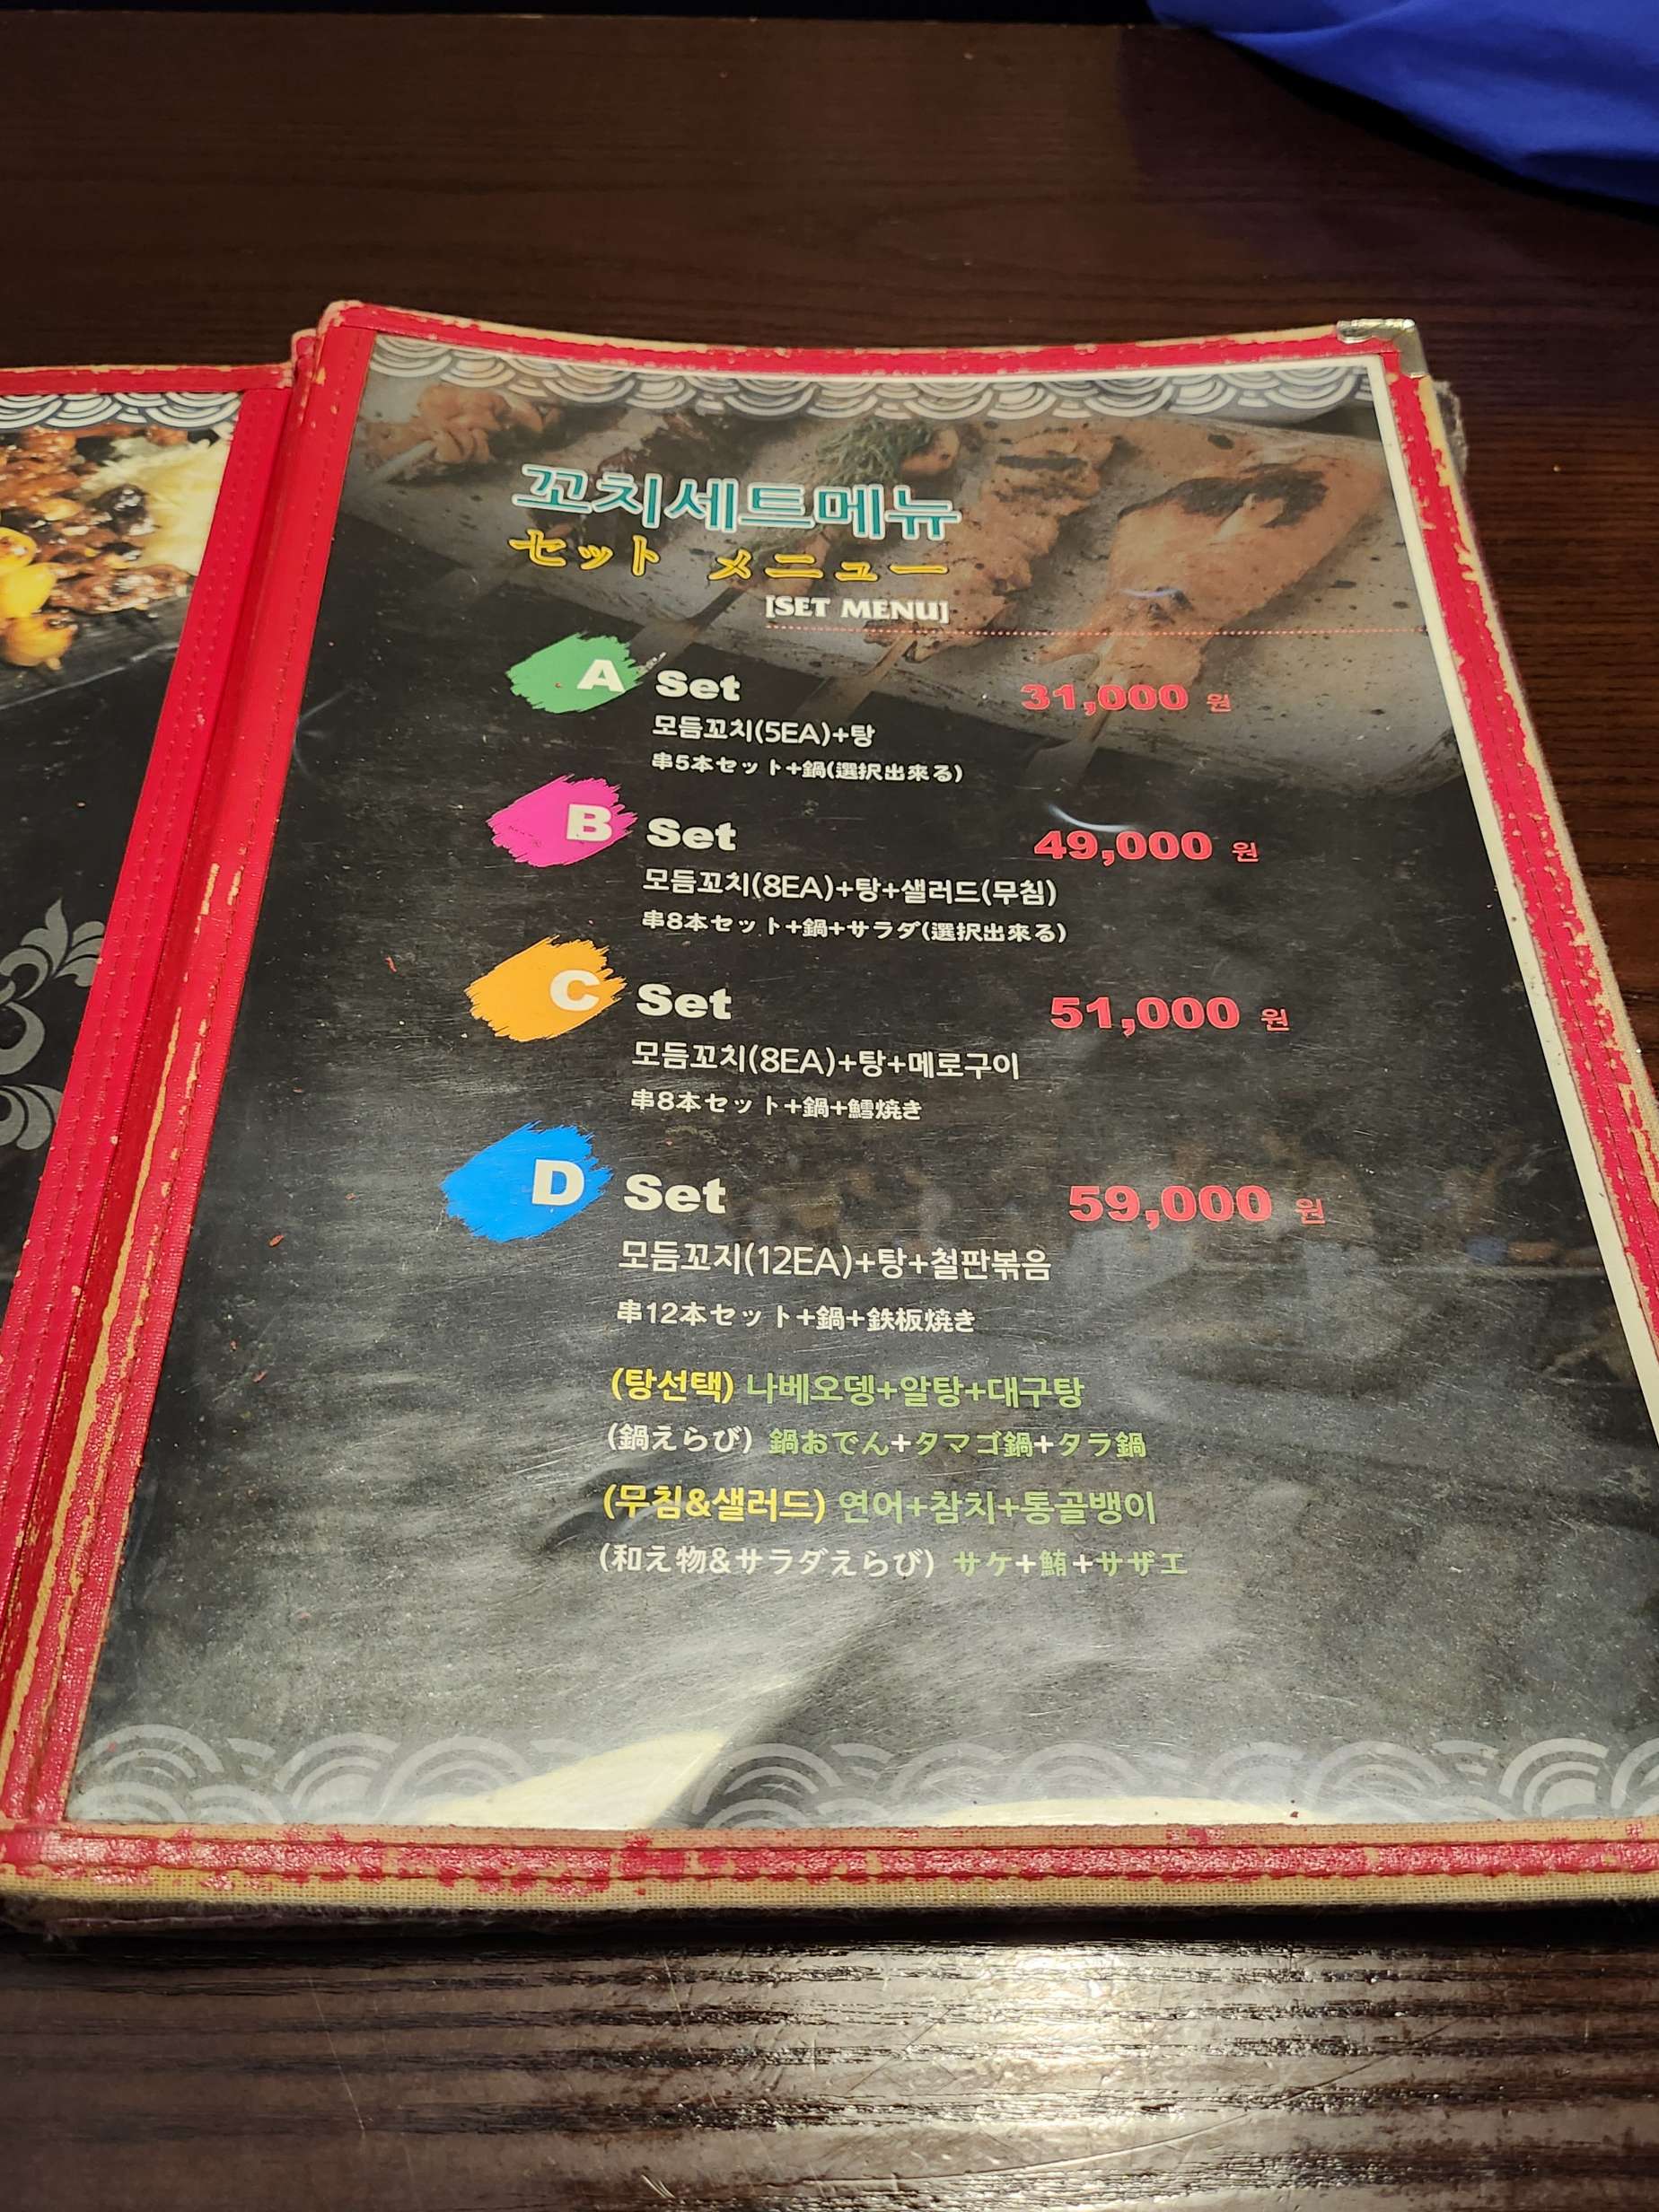 꼬치세트메뉴
セット メニュー
[SET MENU]
A Set 31,000 원
모듬꼬치(5EA)+탕
串5本セット+鍋(選択出来る)
B Set 49,000 원
모듬꼬치(8EA)+탕+샐러드(무침)
串8本セット+鍋+サラダ(選択出来る)
C Set 51,000 원
모듬꼬치(8EA)+탕+메로구이
串8本セット+鍋+鱈焼き
D Set 59,000 원
모듬꼬지(12EA)+탕+철판볶음
串12本セット+鍋+鉄板焼き
(탕선택) 나베오뎅+알탕+대구탕
(鍋えらび) 鍋おでん+タマゴ鍋+タラ鍋
(무침&샐러드) 연어+참치+통골뱅이
(和え物&サラダえらび) サケ+鮪+サザエ